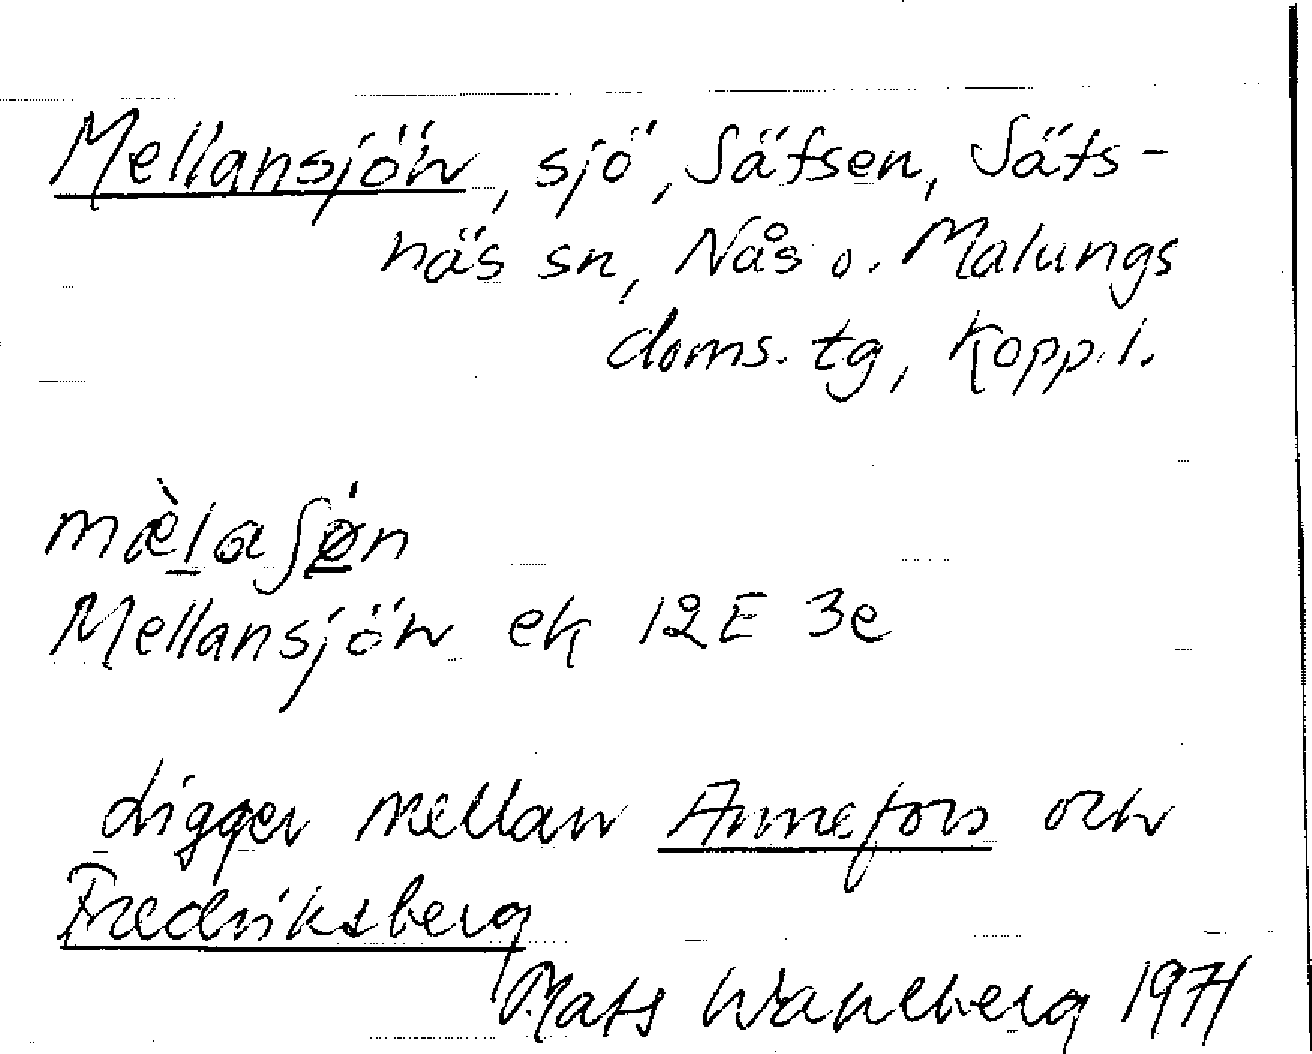 Mellansjön, sjö, Säfsen, Säfs-
näs sn, Nås o. Malungs
doms. tg, Kopp. l.
mæ̀laʃǿn
Mellansjön ek 12E 3e
Ligger mellan Annefors och
Fredriksberg
Mats Wahlberg 1971